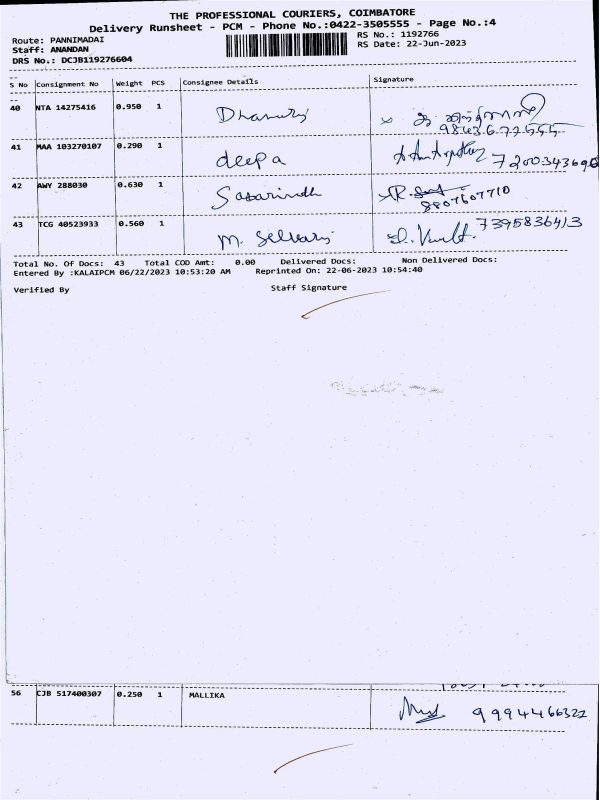 THE PROFESSIONAL COURIERS, COIMBATORE
Delivery Runsheet - PCM - Phone No.:0422-3505555 - Page No.:4
Route: PANNIMADAI
RS No.: 1192766
Staff: ANANDAN
RS Date: 22-Jun-2023
DRS No.: DCJB119276604
S No Consignment No Weight PCS Consignee Details Signature
40 NTA 14275416 0.950 1
9843677555
41 MAA 103270107 0.290 1 deepa 7200343696
42 AWY 288030 0.630 1
8807607710
43 TCG 40523933 0.560 1 M. Selvaraj 7395836413
Total No. Of Docs: 43 Total COD Amt: 0.00 Delivered Docs: Non Delivered Docs:
Entered By :KALAIPCM 06/22/2023 10:53:20 AM Reprinted On: 22-06-2023 10:54:40
Verified By Staff Signature
56 CJB 517400307 0.250 1 MALLIKA
9994466322